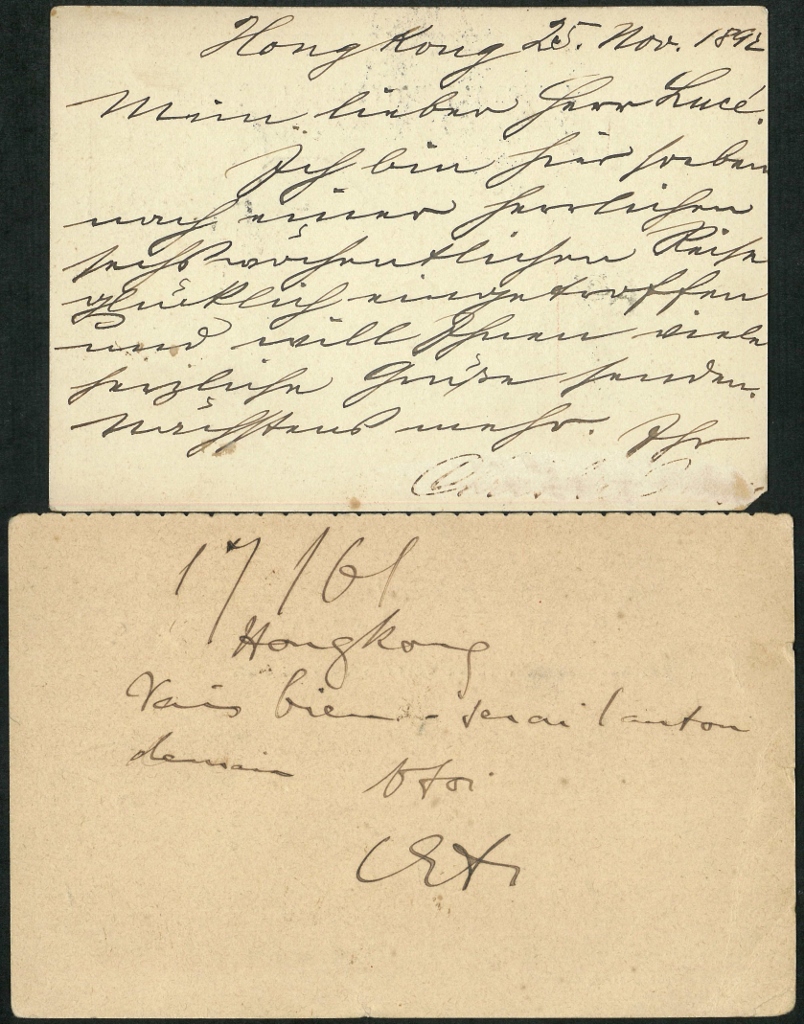 Hongkong 25. Nov. 1892
Mein lieber Herr Lucé.
Ich bin hier soeben
nach einer herrlichen
sechswöchentlichen Reise
glücklich eingetroffen
und will Ihnen viele
herzliche Grüße senden.
Nächstens mehr. Ihr
17/61
Hongkong
Vais bien - serai Canton
demain